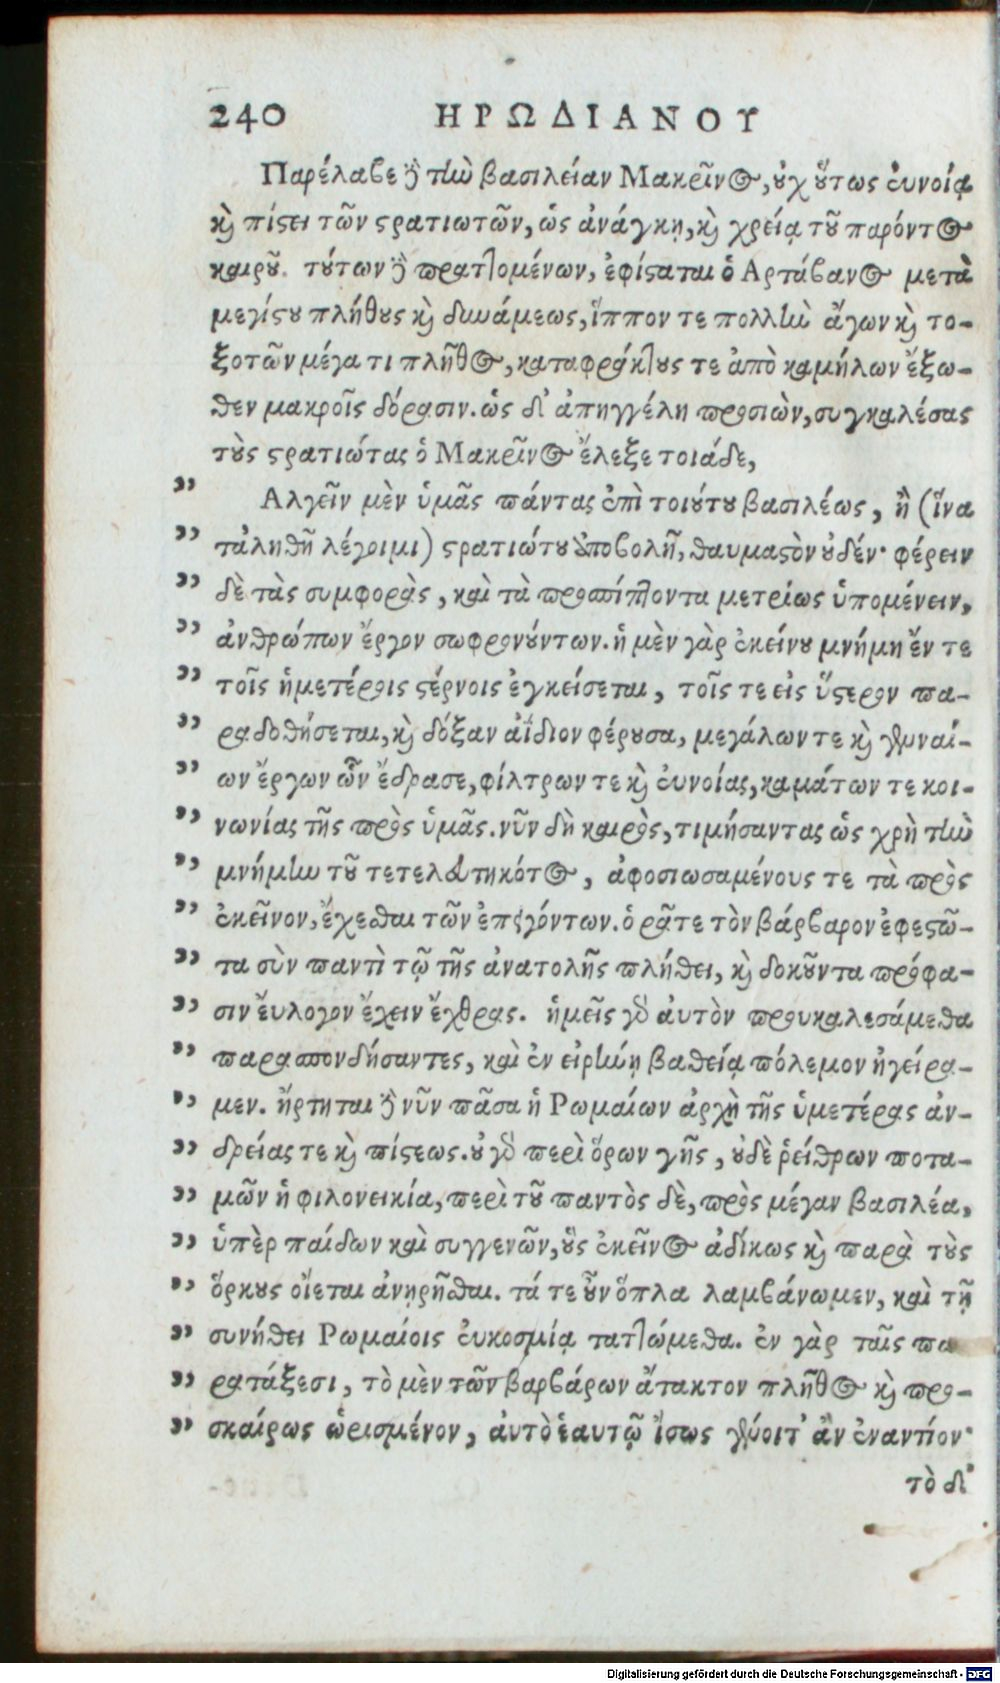 240 ΗΡΩΔΙΑΝΟΥ
Παρέλαβε δὲ τὴν βασιλείαν Μακρῖνος, οὐχ οὕτως εὐνοίᾳ
καὶ πίστει τῶν στρατιωτῶν, ὡς ἀνάγκῃ, καὶ χρείᾳ τοῦ παρόντος
καιροῦ. τούτων δὲ πραττομένων, ἐφίσταται ὁ Αρτάβανος μετὰ
μεγίστου πλήθους καὶ δυνάμεως, ἵππον τε πολλὴν ἄγων καὶ το-
ξοτῶν μέγα τι πλῆθος, καταφράκτους τε ἀπὸ καμήλων ἔξω-
θεν μακροῖς δόρασιν. ὡς δ' ἀπηγγέλη προσιὼν, συγκαλέσας
τοὺς στρατιώτας ὁ Μακρῖνος ἔλεξε τοιάδε,
" Αλγεῖν μὲν ὑμᾶς πάντας ἐπὶ τοιούτου βασιλέως, ἢ (ἵνα
" τἀληθῆ λέγοιμι) στρατιώτου ὑποβολῇ, θαυμαστὸν οὐδέν· φέρειν
" δὲ τὰς συμφορὰς, καὶ τὰ προσπίπτοντα μετρίως ὑπομένειν,
" ἀνθρώπων ἔργον σωφρονούντων. ἡ μὲν γὰρ ἐκείνου μνήμη ἔν τε
" τοῖς ἡμετέροις στέρνοις ἐγκείσεται, τοῖς τε εἰς ὕστερον πα-
" ραδοθήσεται, καὶ δόξαν ἀΐδιον φέρουσα, μεγάλων τε καὶ γενναί-
" ων ἔργων ὧν ἔδρασε, φίλτρων τε καὶ εὐνοίας, καμάτων τε κοι-
" νωνίας τῆς πρὸς ὑμᾶς. νῦν δὴ καιρὸς, τιμήσαντας ὡς χρὴ τὴν
" μνήμην τοῦ τετελευτηκότος, ἀφοσιωσαμένους τε τὰ πρὸς
" ἐκεῖνον, ἔχεσθαι τῶν ἐπειγόντων. ὁρᾶτε τὸν βάρβαρον ἐφεστῶ-
" τα σὺν παντὶ τῷ τῆς ἀνατολῆς πλήθει, καὶ δοκοῦντα πρόφα-
" σιν εὔλογον ἔχειν ἔχθρας. ἡμεῖς γὰρ αὐτὸν προυκαλεσάμεθα
" παρασπονδήσαντες, καὶ ἐν εἰρήνῃ βαθείᾳ πόλεμον ἠγείρα-
" μεν. ἤρτηται δὲ νῦν πᾶσα ἡ Ρωμαίων ἀρχὴ τῆς ὑμετέρας ἀν-
" δρείας τε καὶ πίστεως. οὐ γὰρ περὶ ὅρων γῆς, οὐδὲ ῥείθρων ποτα-
" μῶν ἡ φιλονεικία, περὶ τοῦ παντὸς δὲ, πρὸς μέγαν βασιλέα,
" ὑπὲρ παίδων καὶ συγγενῶν, οὓς ἐκεῖνος ἀδίκως καὶ παρὰ τοὺς
" ὅρκους οἴεται ἀνῃρῆσθαι. τά τε οὖν ὅπλα λαμβάνωμεν, καὶ τῇ
" συνήθει Ρωμαίοις εὐκοσμίᾳ ταττώμεθα. ἐν γὰρ ταῖς πα
" ρατάξεσι, τὸ μὲν τῶν βαρβάρων ἄτακτον πλῆθος καὶ προ-
" σκαίρως ὡρισμένον, αὐτὸ ἑαυτῷ ἴσως γένοιτ' ἂν ἐναντίον·
τὸ δ'
Digitalisierung gefördert durch die Deutsche Forschungsgemeinschaft - DFG